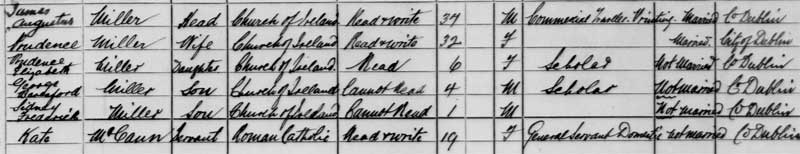 James Augustus Miller Head Church of Ireland Read & write 34 M Commercial Traveller. Printing. Married Co Dublin
Prudence Miller Wife Church of Ireland Read & write 32 F Married. City of Dublin
Prudence Elizabeth Miller Daughter Church of Ireland. Read 6 F Scholar Not Married Co Dublin
George Miller Son Church of Ireland Cannot Read 4 M Scholar Not Married Co Dublin
Sidney Frederick Miller Son Church of Ireland Cannot Read 1 M Not Married Co Dublin
Kate McCann Servant Roman Catholic Read & write 19 F General Servant Domestic not married Co Dublin